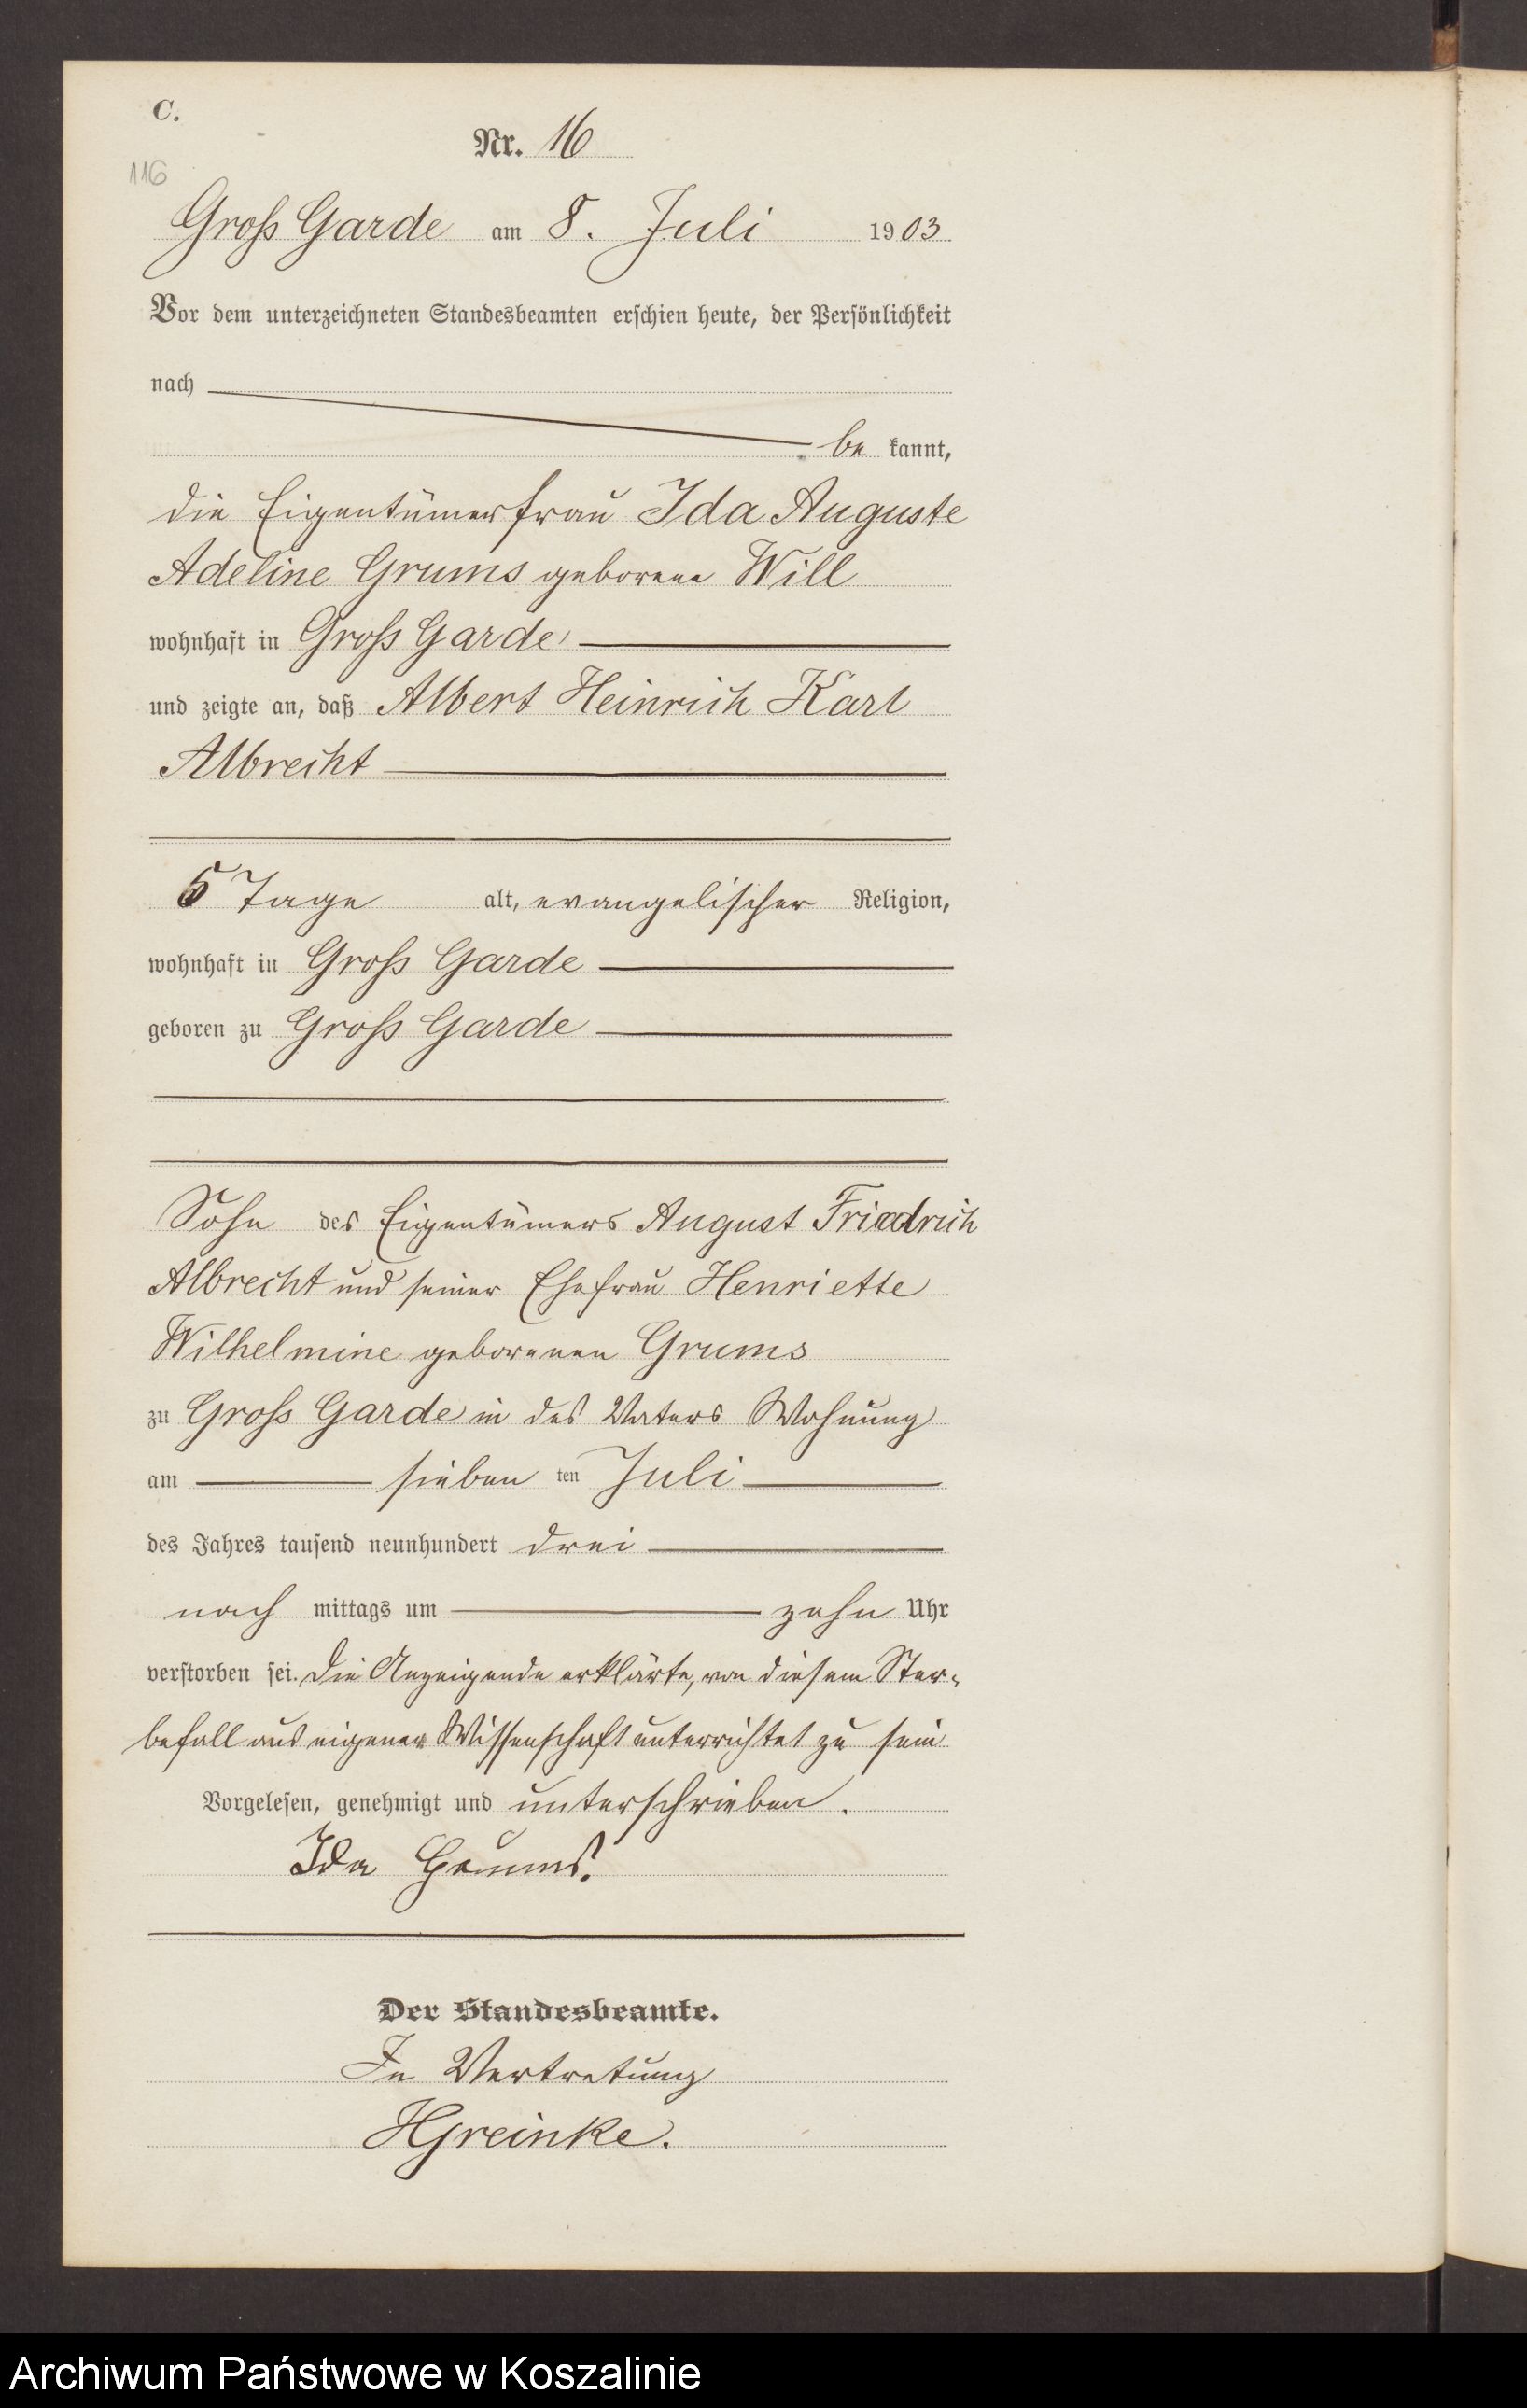 C.
Nr. 16
116
Groß Garde am 8. Juli 1903
Vor dem unterzeichneten Standesbeamten erschien heute, der Persönlichkeit
nach
be kannt,
die Eigentümerfrau Ida Auguste
Adeline Grums geborene Will
wohnhaft in Groß Garde
und zeigte an, daß Albert Heinrich Karl
Albrecht
5 Tage alt, evangelischer Religion,
wohnhaft in Groß Garde
geboren zu Groß Garde
Sohn des Eigentümers August Friedrich
Albrecht und seiner Ehefrau Henriette
Wilhelmine geborenen Grums
zu Groß Garde in des Vaters Wohnung
am sieben ten Juli
des Jahres tausend neunhundert drei
nach mittags um zehn Uhr
verstorben sei. Die Anzeigende erklärte, von diesem Ster-
befall aus eigener Wissenschaft unterrichtet zu sein
Vorgelesen, genehmigt und unterschrieben.
Ida Grums.
Der Standesbeamte.
In Vertretung
HGreinke.
Archiwum Państwowe w Koszalinie